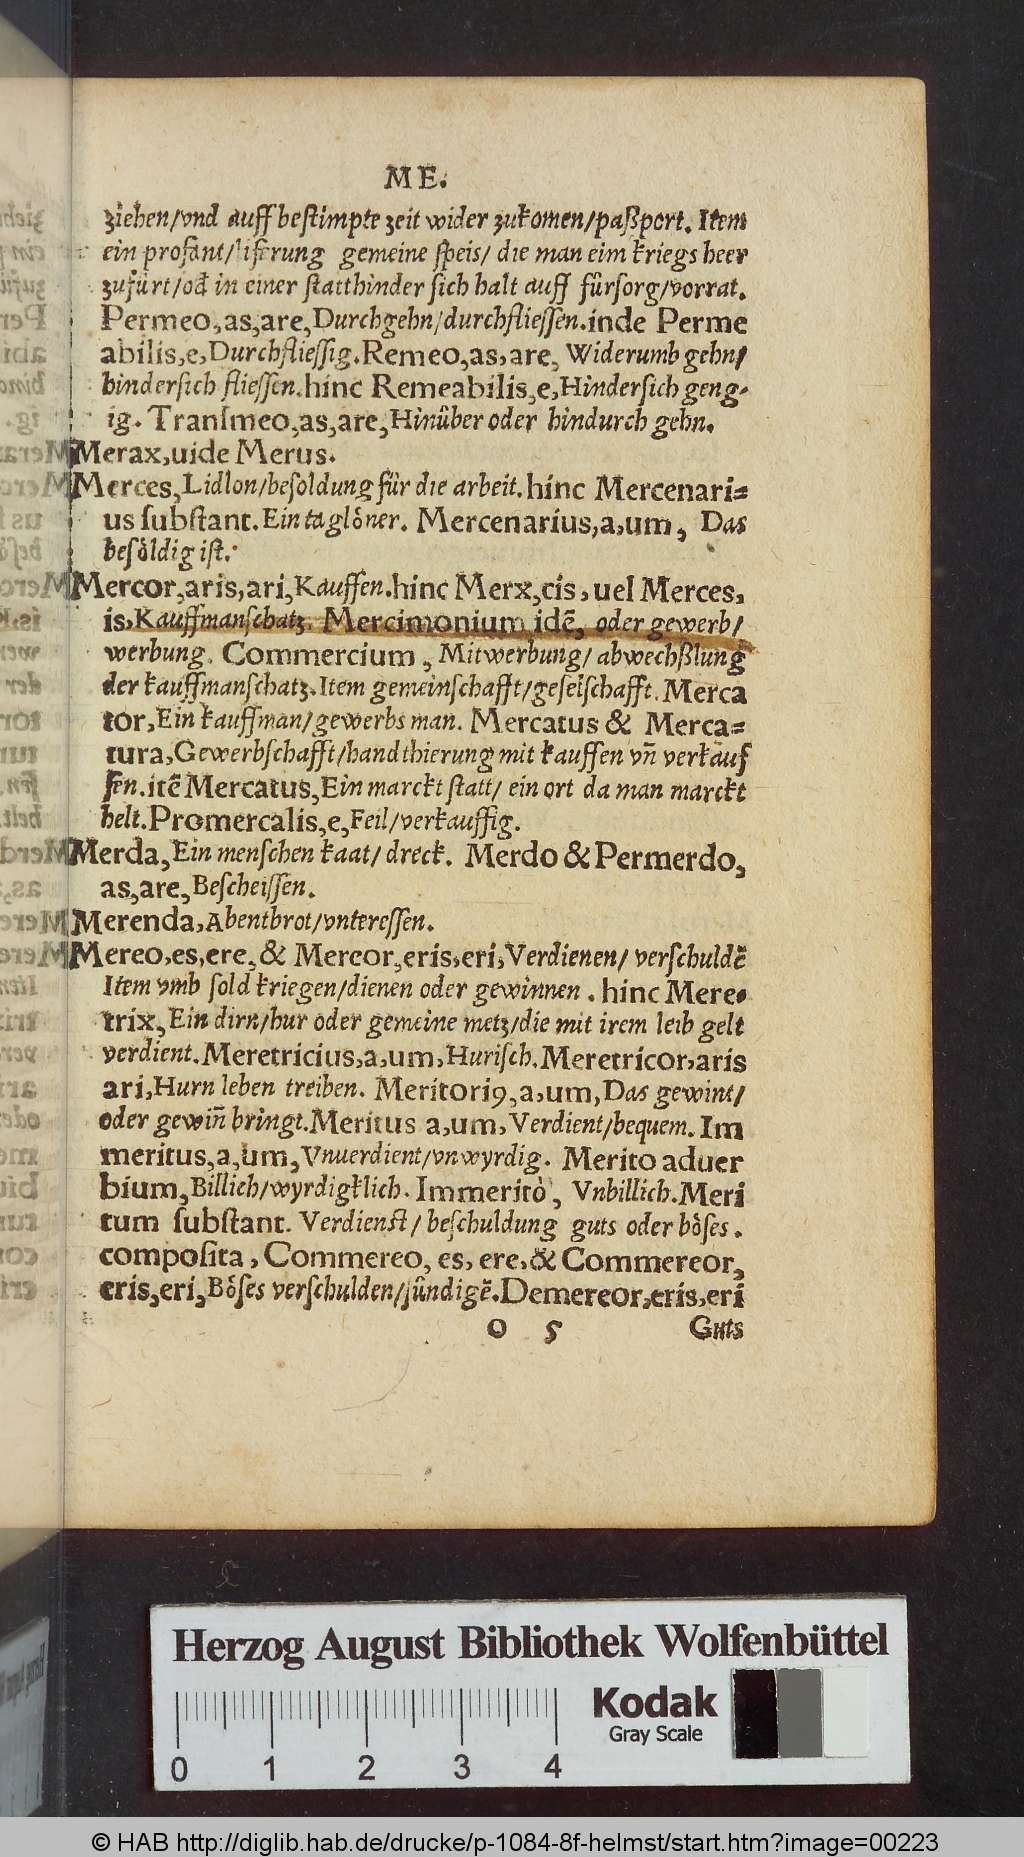 ME.
ziehen/vnd auff bestimpte zeit wider zukomen/paßport. Item
ein profant/liferung gemeine speis/ die man eim kriegs heer
zufürt/od̄ in einer statt hinder sich halt auff fürsorg/vorrat.
Permeo,as,are,Durchgehn/durchfliessen.inde Perme
abilis,e,Durchfliessig.Remeo,as,are, Widerumb gehn/
hindersich fliessen.hinc Remeabilis,e,Hindersich geng-
ig. Transmeo,as,are,Hinüber oder hindurch gehn.
Merax,uide Merus.
Merces,Lidlon/besoldung für die arbeit.hinc Mercenari=
us substant.Ein taglöner. Mercenarius,a,um, Das
besöldig ist.
Mercor,aris,ari,Kauffen.hinc Merx,cis,uel Merces,
is,Kauffmanschatz. Mercimonium idē, oder gewerb/
werbung. Commercium, Mitwerbung/ abwechßlung
der kauffmanschatz.Item gemeinschafft/geselschafft.Merca
tor,Ein kauffman/gewerbs man. Mercatus & Merca=
tura,Gewerbschafft/handthierung mit kauffen vn̄ verkauf
fen.itē Mercatus,Ein marckt statt/ ein ort da man marckt
helt.Promercalis,e,Feil/verkauffig.
Merda,Ein menschen kaat/ dreck. Merdo & Permerdo,
as,are,Bescheissen.
Merenda,Abentbrot/vnteressen.
Mereo,es,ere,& Mereor,eris,eri,Verdienen/ verschuldē
Item vmb sold kriegen/dienen oder gewinnen. hinc Mere-
trix,Ein dirn/hur oder gemeine metz/die mit irem leib gelt
verdient.Meretricius,a,um,Hurisch.Meretricor,aris
ari,Hurn leben treiben. Meritoriꝰ,a,um,Das gewint/
oder gewin̄ bringt.Meritus a,um,Verdient/bequem.Im
meritus,a,um,Vnuerdient/vnwyrdig. Merito aduer
bium,Billich/wyrdigklich.Immeritò, Vnbillich.Meri
tum substant. Verdienst/ beschuldung guts oder böses.
composita, Commereo, es, ere,& Commereor,
eris,eri,Böses verschulden/sündigē.Demereor,eris,eri
O 5 Guts
Herzog August Bibliothek Wolfenbüttel
Kodak
Gray Scale
0 1 2 3 4
© HAB http://diglib.hab.de/drucke/p-1084-8f-helmst/start.htm?image=00223